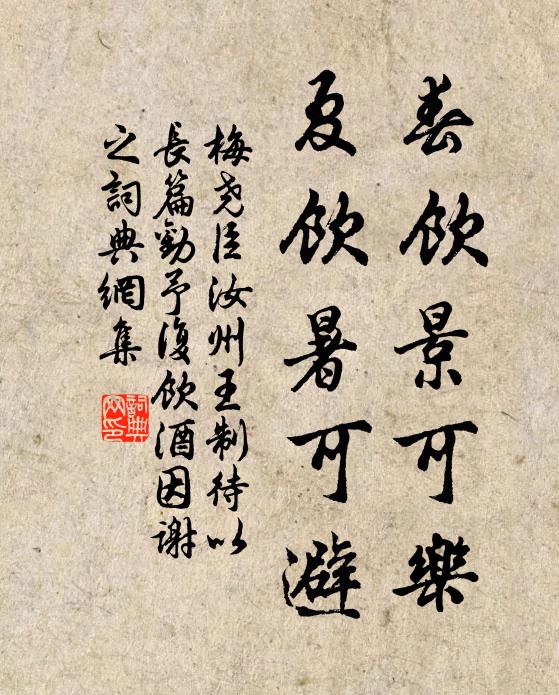 春飲景可樂
夏飲暑可避
梅堯臣汝州王制待以
長篇勸予復飲酒因謝
之詞典網集
詞典
网印